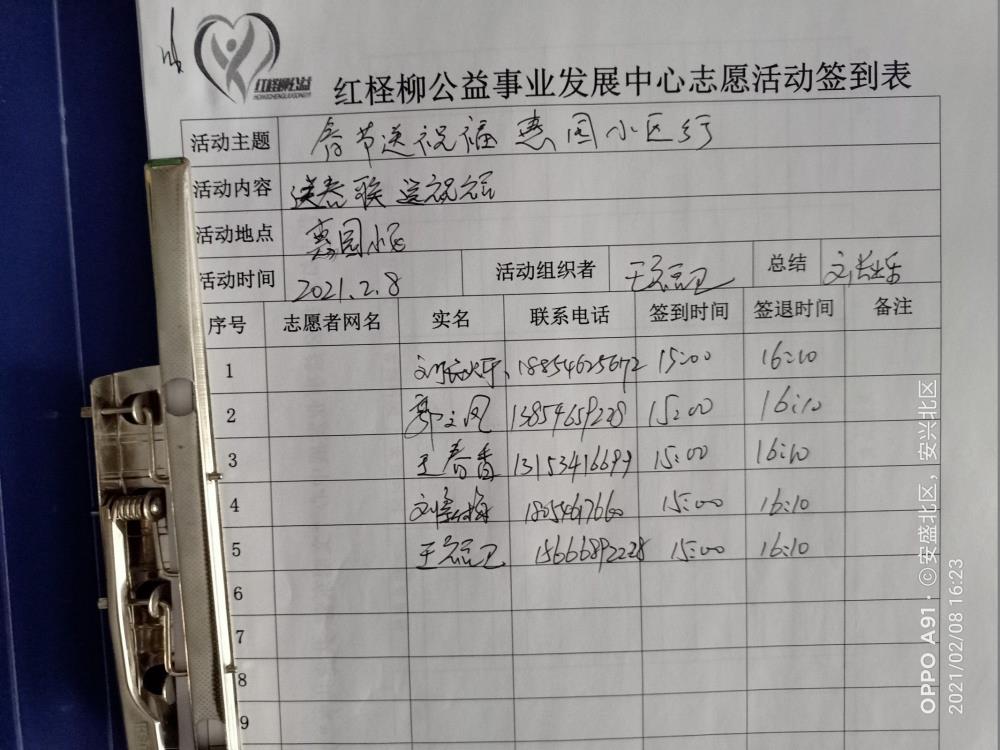 红柽柳公益
HONGCHENGLIUGONGYI
红柽柳公益事业发展中心志愿活动签到表
活动主题 春节送祝福 惠园小区行
活动内容 送春联 送祝福
活动地点 惠园小区
活动时间 2021.2.8 活动组织者 总结
序号 志愿者网名 实名 联系电话 签到时间 签退时间 备注
1 18854625672 15:00 16:10
2 郭文凤 13854659228 15:00 16:10
3 王春香 13153416699 15:00 16:10
4 15:00 16:10
5 15666892228 15:00 16:10
6
7
8
9
OPPO A91 · ©安盛北区，安兴北区
2021/02/08 16:23